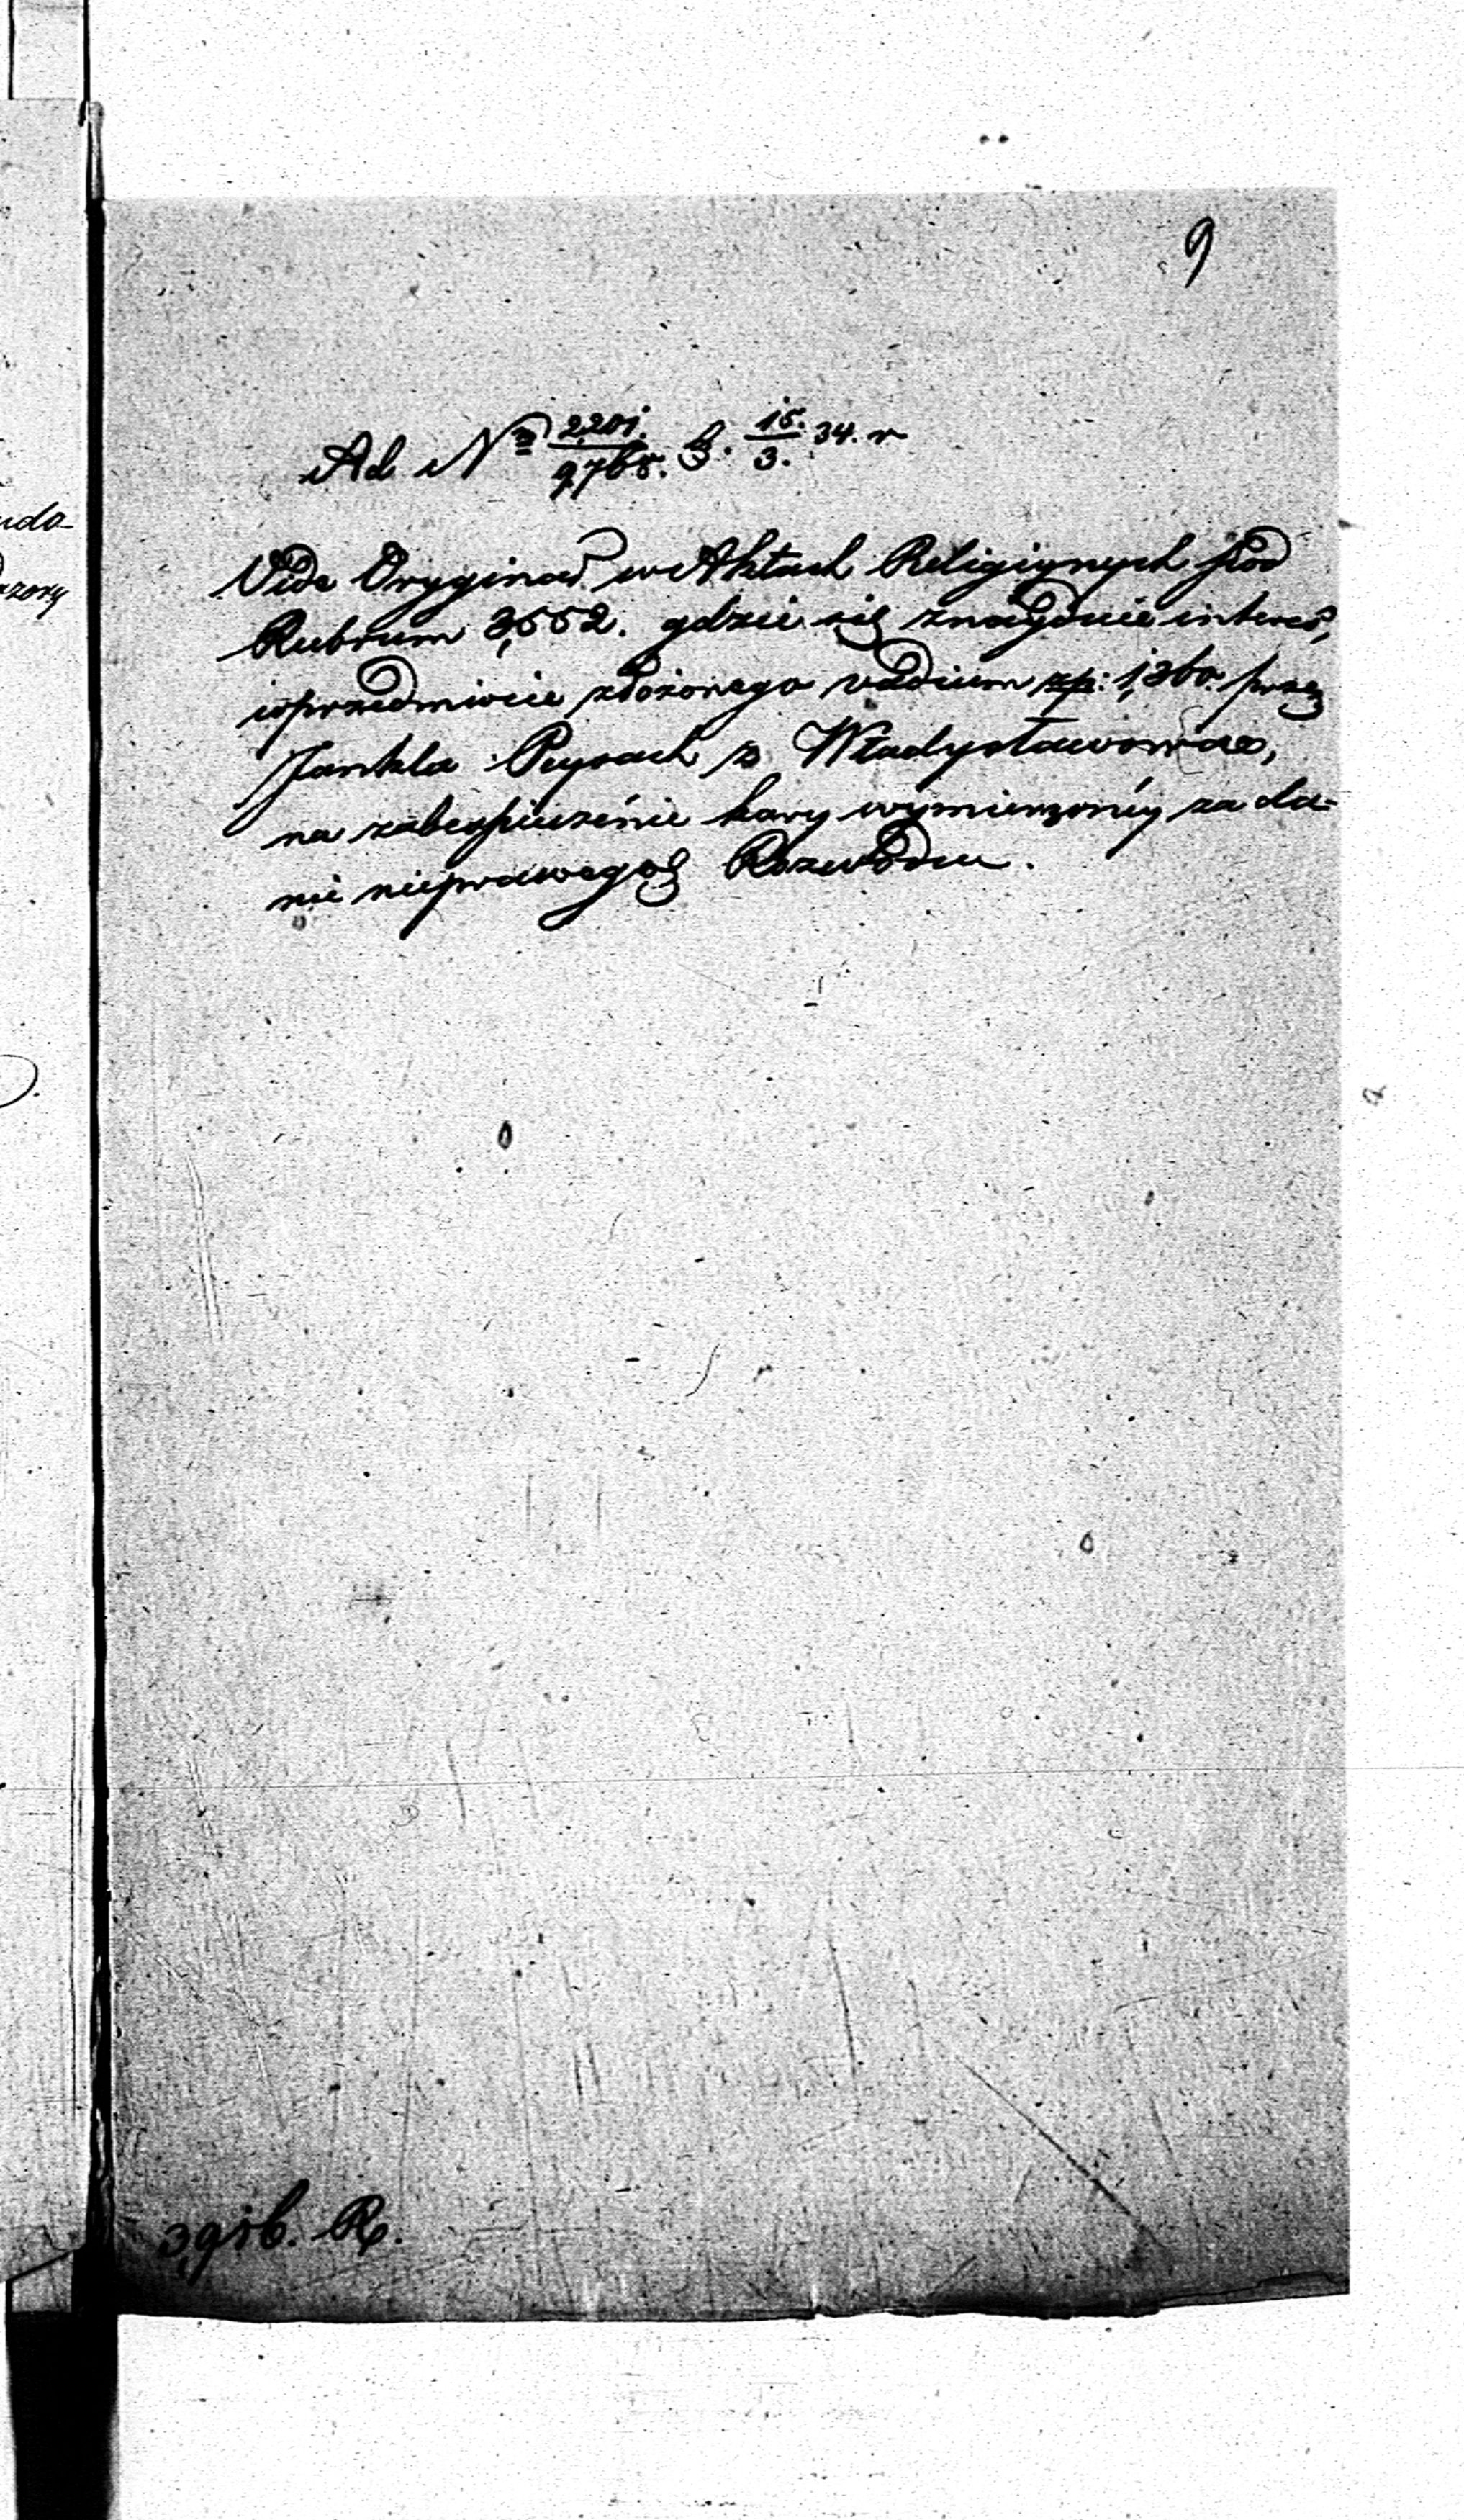 9
Ad Nro 2201./9765. G. 15./3. 34. r
Vide Oryginał w Aktach Religiynych pod
Rubrum 3,552. gdzie się znayduie interes,
w przedmiocie złożonego vadium zp: 1,360. przez
Jankla Peysach z Władysławowa,
na zabespieczénie kary wymierzonéy za da-
nie nieprawego Rozwodu.
3,956. R.